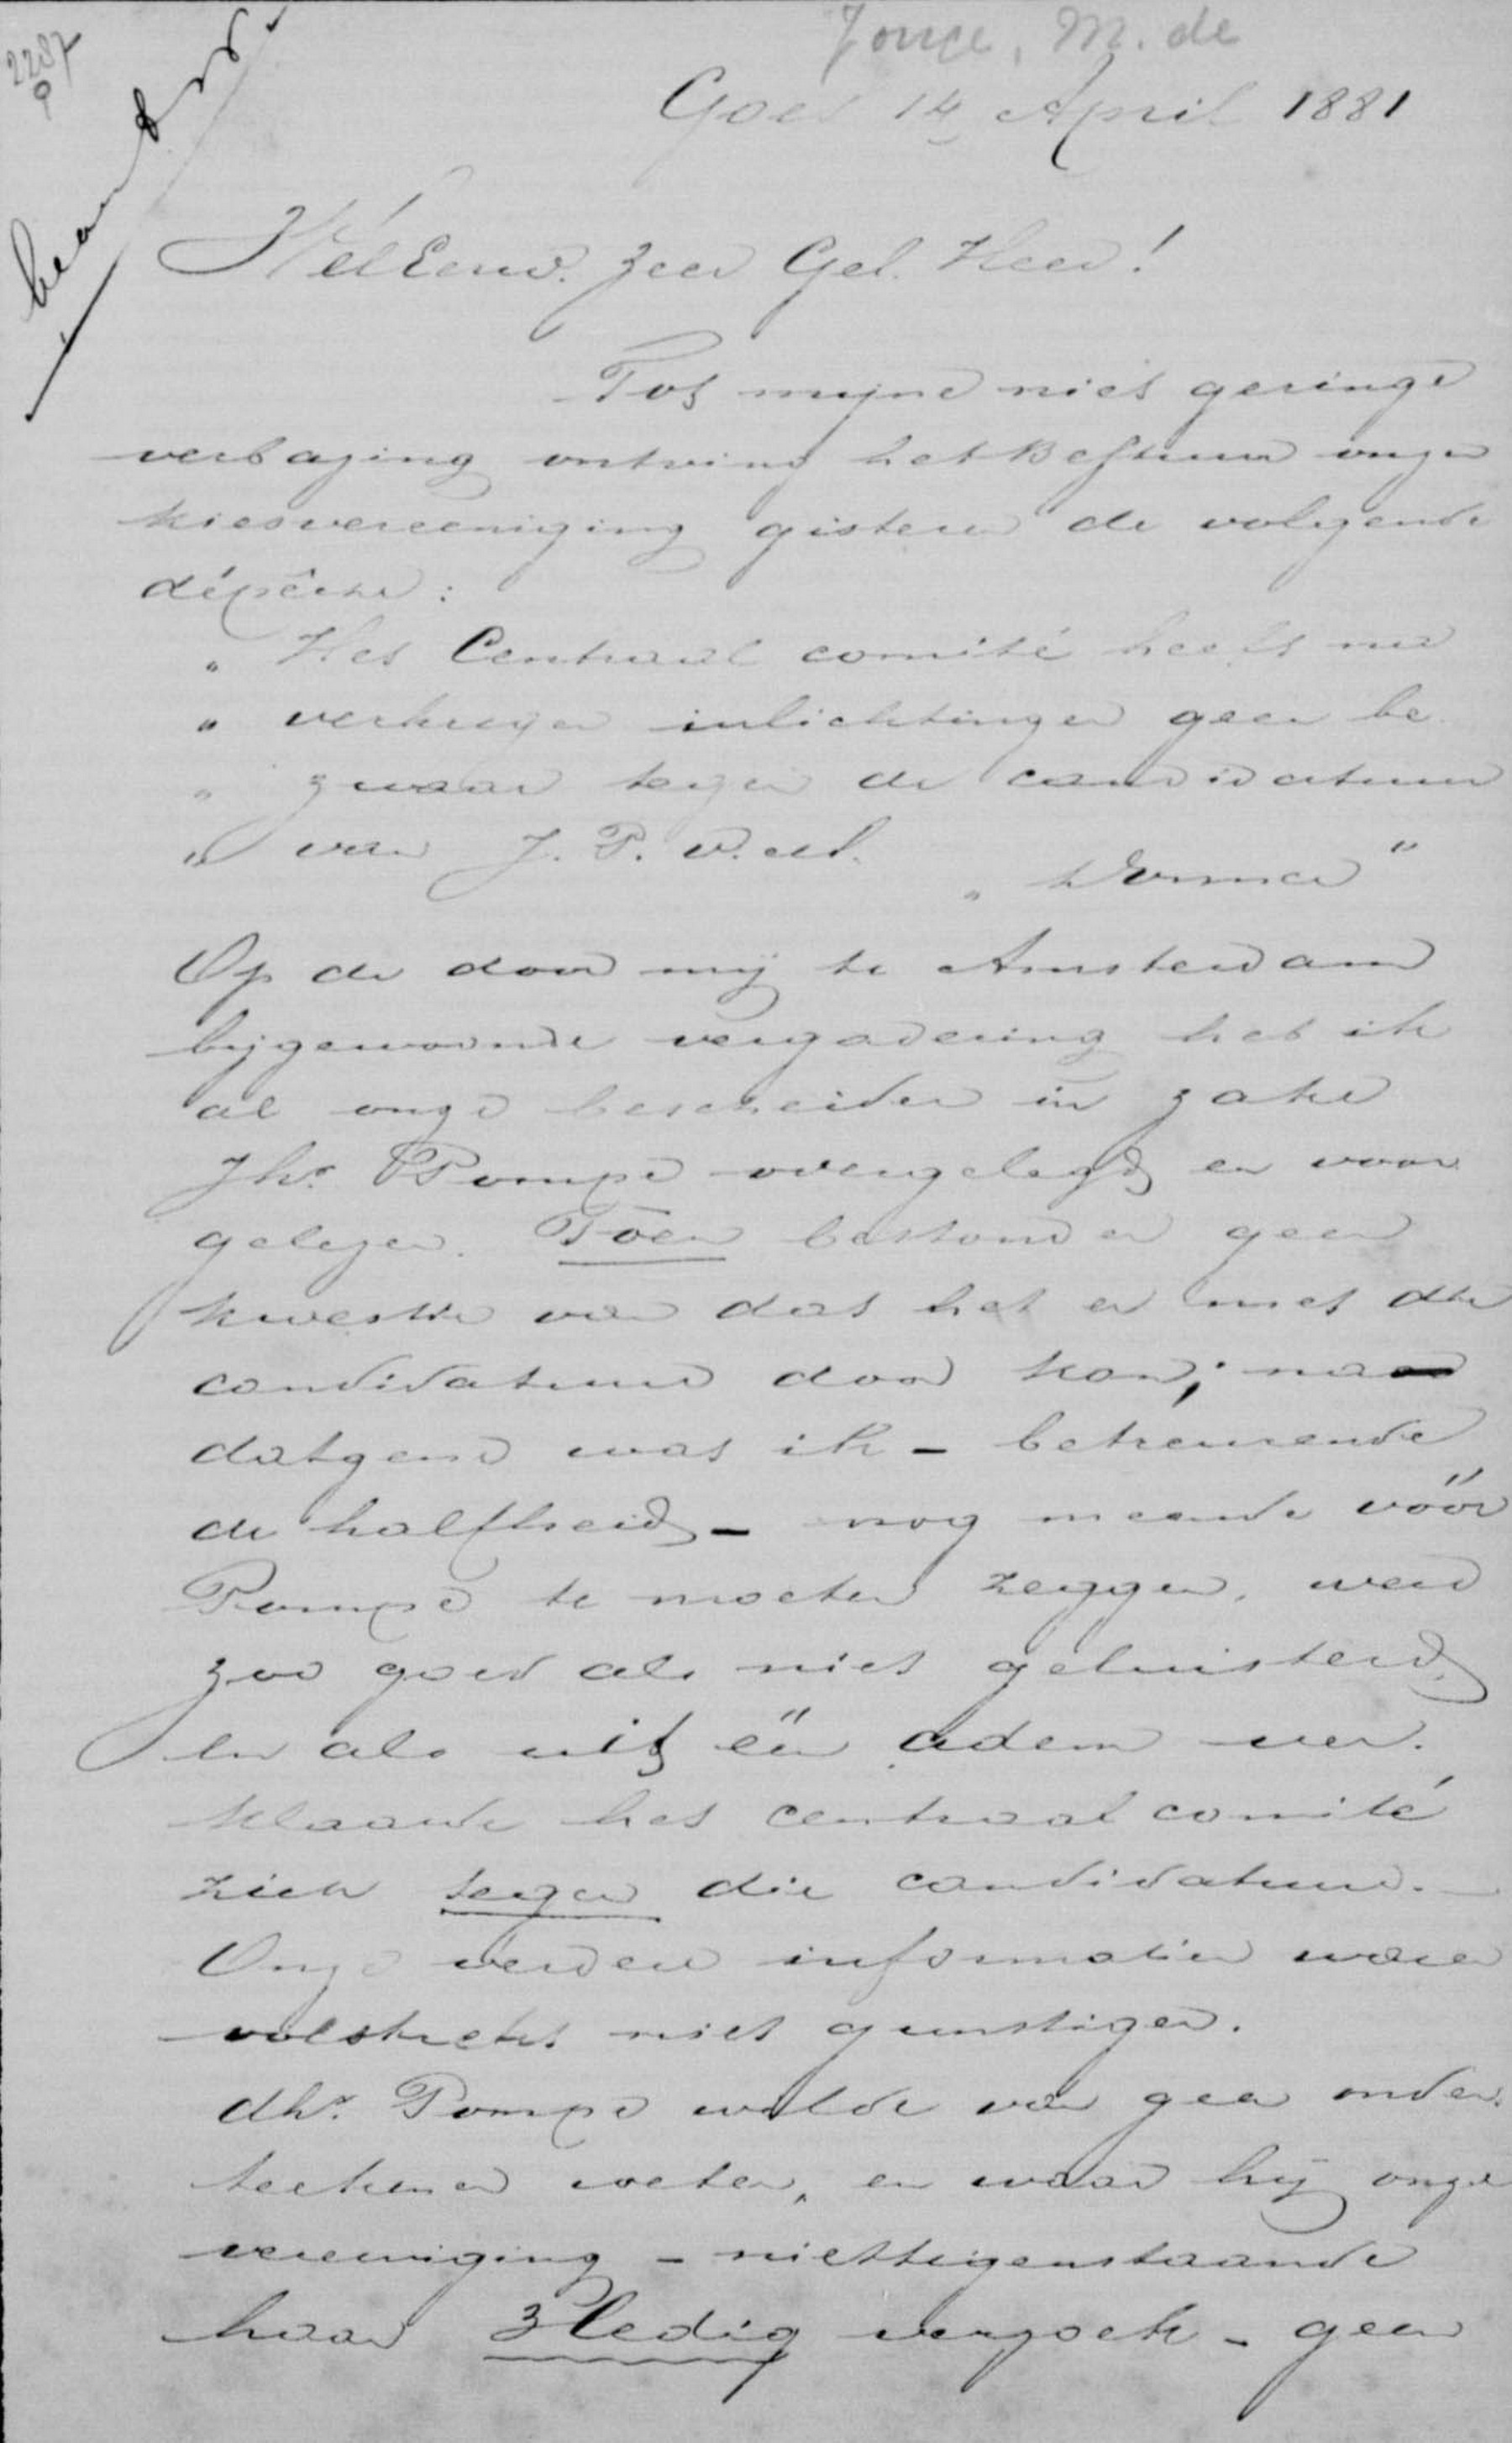 2287
Jonge, M. de
beantw.
Goes 14 April 1881
WelEerw. Zeer Gel. Heer!
Tot mijne niet geringe
verbazing ontving het Bestuur onzer
kiesvereeniging gisteren de volgende
dépêche:
„ Het Centraal comité heeft na
„ verkregen inlichtingen geen be
„ zwaar tegen de candidatuur
„ van J. P. v. d.
Op de door mij te Amsterdam
bijgewoonde vergadering heb ik
al onze bescheiden in zake
Jhr. Pompe overgelegd en voor
gelezen. Toen bestond er geen
kwestie van dat het er met die
candidatuur door kon; naar
datgene was ik - betreurende
de halfheid - nog meende vóór
Pompe te moeten zeggen, werd
zoo goed als niet geluisterd,
en als uit één adem ver-
klaarde het centraal comité
zich tegen die candidatuur. -
Onze verdere informatien waren
volstrekt niet gunstiger.
dhr. Pompe wilde van geen onder-
teekenen weten, en waar hij onze
vereeniging - niettegenstaande
haar 3ledig verzoek - geen